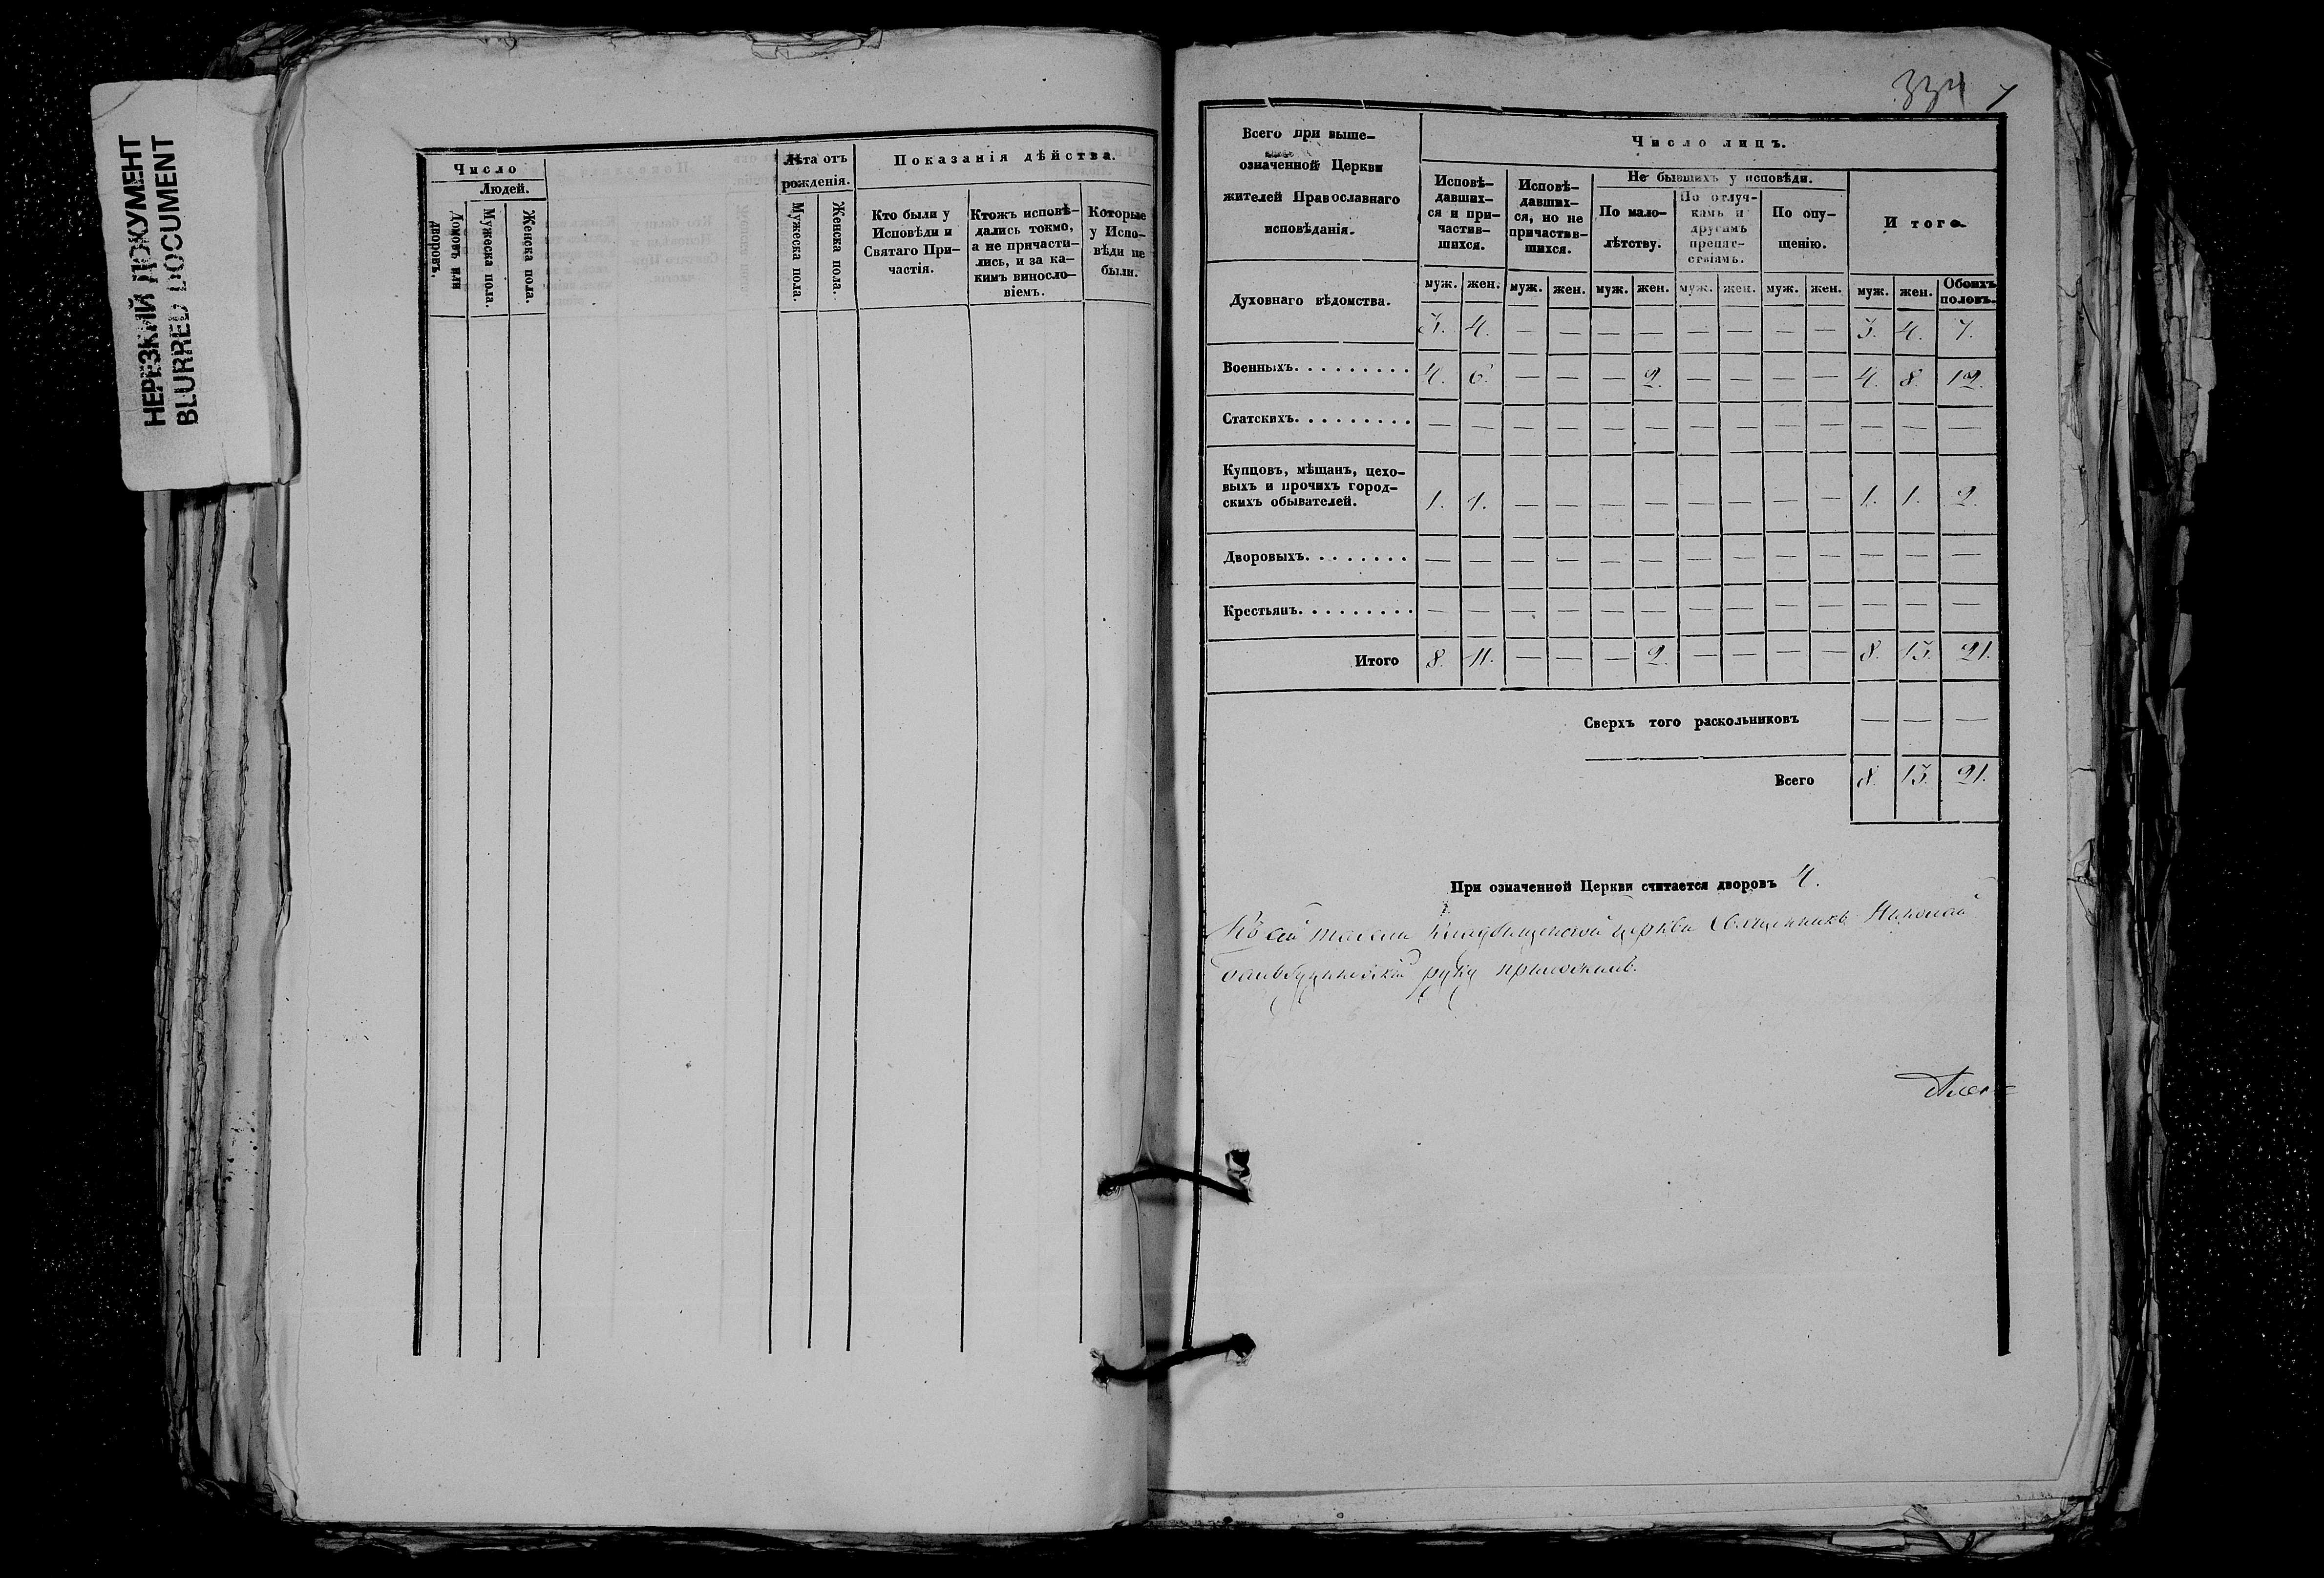 НЕРЕЗКИЙ ДОКУМЕНТ
BLURRED DOCUMENT
Число
Людей.
Домовъ или дворовъ.
Мужеска пола.
Женска пола.
Лѣта отъ
рожденія.
Мужеска пола.
Женска пола.
Показанія дѣйства.
Кто были у
Исповѣди и
Святаго При-
частія.
Ктожъ исповѣ-
дались токмо,
а не причасти-
лись, и за ка-
кимъ винесло-
віемъ.
Которые
у Испо-
вѣди не
были.
334 7
Всего при выше-
означенной Церкви
жителей Православнаго
исповѣданія.
Число лицъ.
Исповѣ-
давших-
ся и при-
частив-
шихся.
Исповѣ-
давших-
ся, но не
причастив-
шихся.
Не бывшихъ у исповѣди.
По мало-
лѣтству.
По отлуч-
камъ и
другимъ
препят-
ствіямъ.
По опу-
щенію.
Итого
муж. жен. муж. жен. муж. жен. муж. жен. муж. жен. муж. жен. Обоихъ половъ.
Духовнаго вѣдомства. 3. 4. — — — — — — — — 3. 4. 7.
Военныхъ. . . . . . . . . 4. 6. — — — 2. — — — — 4. 8. 12.
Статскихъ. . . . . . . . . — — — — — — — — — — — — —
Купцовъ, мѣщанъ, цехо-
выхъ и прочихъ город-
скихъ обывателей. 1. 1. — — — — — — — — 1. 1. 2.
Дворовыхъ. . . . . . . . — — — — — — — — — — — — —
Крестьянъ. . . . . . . . . — — — — — — — — — — — — —
Итого 8. 11. — — — 2. — — — — 8. 13. 21.
Сверхъ того раскольниковъ — — —
Всего 8. 13. 21.
При означенной Церкви считается дворовъ 4.
Къ сей Кладбищенской церкви Священникъ Николай
руку приложилъ.